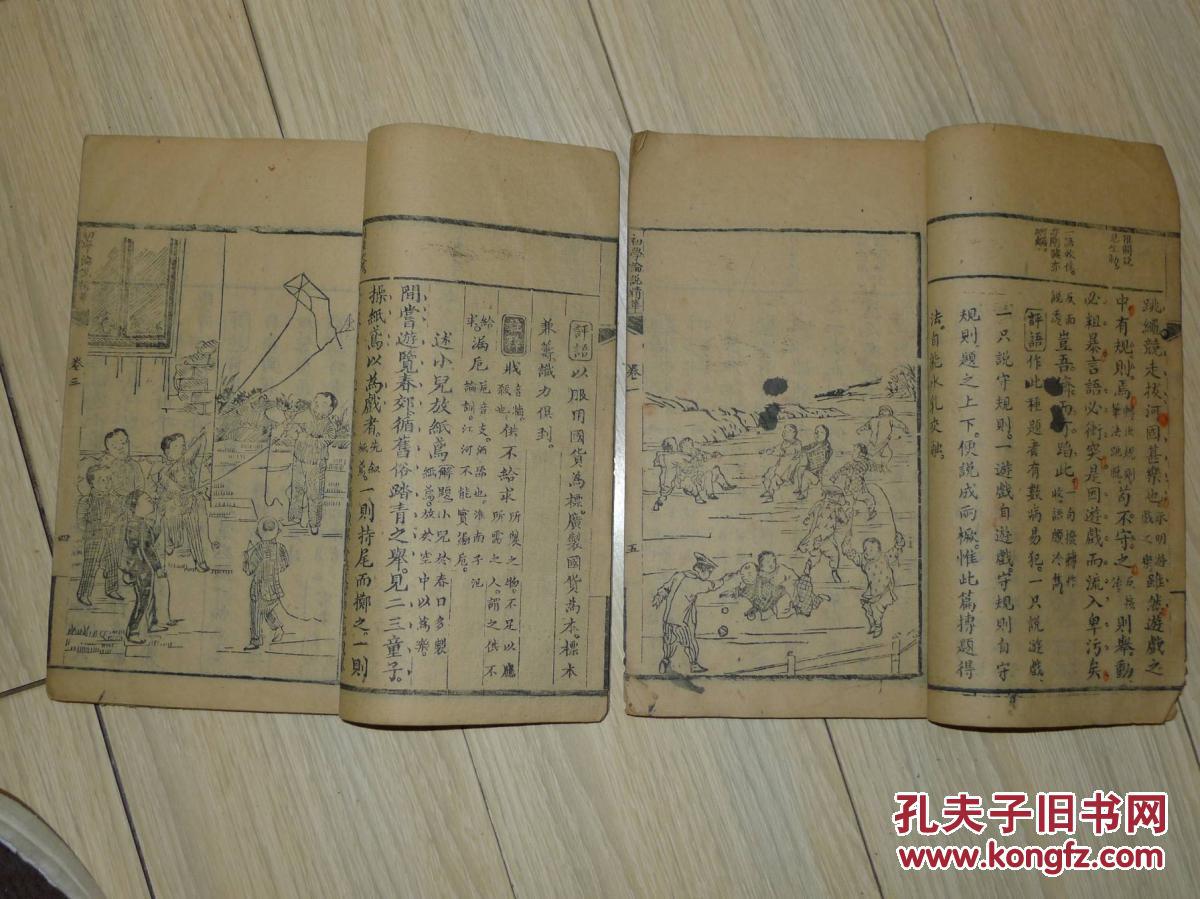 跳繩競走拔河因甚樂也雖然遊戲之
中有規則焉苟不守之則舉動
必粗暴言語必衝突是因遊戲而流入卑污矣
反面豈吾儕而蹈此
評語作此種題者有數病易犯一只說遊戲
一只說守規則一遊戲自遊戲守規則自守
規則題之上下便說成兩橛惟此篇摶題得
法自能水乳交融
初學論說精華
卷一
五
評語以服用國貨為標廣製國貨為本標本
兼籌識力俱到
註釋
供不給求所製之物不足以應
所需之人謂之供不
給求
漏卮
卮音支酒器也淮南子氾
論訓江河不能實漏卮
述小兒放紙鳶解題小兒於春日多製
紙鳶放於空中以為樂
間嘗遊覽春郊循舊俗踏青之舉見二三童子
操紙鳶以為戲者一則持尾而擲之一則
卷三
四
孔夫子旧书网
www.kongfz.com